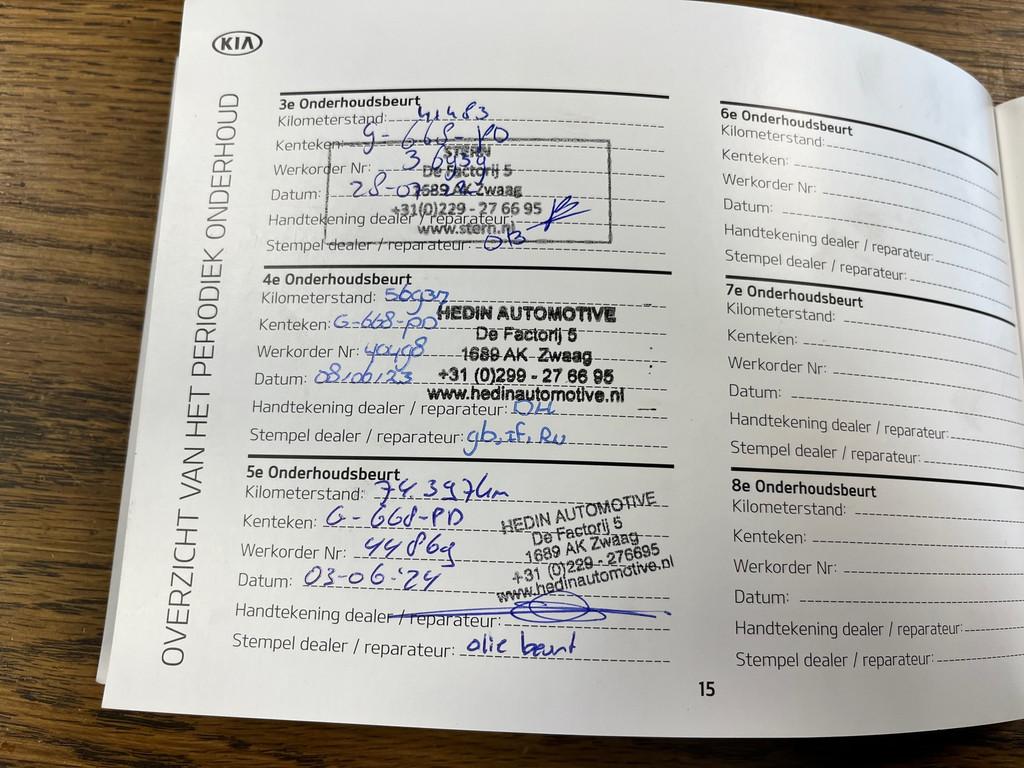 KIA
OVERZICHT VAN HET PERIODIEK ONDERHOUD
3e Onderhoudsbeurt
Kilometerstand: 41483
Kenteken: G-668-PD
Werkorder Nr: 36939
Datum: 28-0
Handtekening dealer / reparateur:
Stempel dealer / reparateur: OB
STERN
De Factorij 5
1689 AK Zwaag
+31(0)229 - 27 66 95
www.stern.nl
4e Onderhoudsbeurt
Kilometerstand: 56937
Kenteken: G-668-PD
Werkorder Nr: 40498
Datum: 08/06/23
Handtekening dealer / reparateur: DH
Stempel dealer / reparateur: gb, if, Ru
HEDIN AUTOMOTIVE
De Factorij 5
1689 AK Zwaag
+31 (0)299 - 27 66 95
www.hedinautomotive.nl
5e Onderhoudsbeurt
Kilometerstand: 74.397km
Kenteken: G-668-PD
Werkorder Nr: 44869
Datum: 03-06-'24
Handtekening dealer / reparateur:
Stempel dealer / reparateur: olie beurt
HEDIN AUTOMOTIVE
De Factorij 5
1689 AK Zwaag
+31 (0)229 - 276695
www.hedinautomotive.nl
6e Onderhoudsbeurt
Kilometerstand:
Kenteken:
Werkorder Nr:
Datum:
Handtekening dealer / reparateur:
Stempel dealer / reparateur:
7e Onderhoudsbeurt
Kilometerstand:
Kenteken:
Werkorder Nr:
Datum:
Handtekening dealer / reparateur:
Stempel dealer / reparateur:
8e Onderhoudsbeurt
Kilometerstand:
Kenteken:
Werkorder Nr:
Datum:
Handtekening dealer / reparateur:
Stempel dealer / reparateur:
15